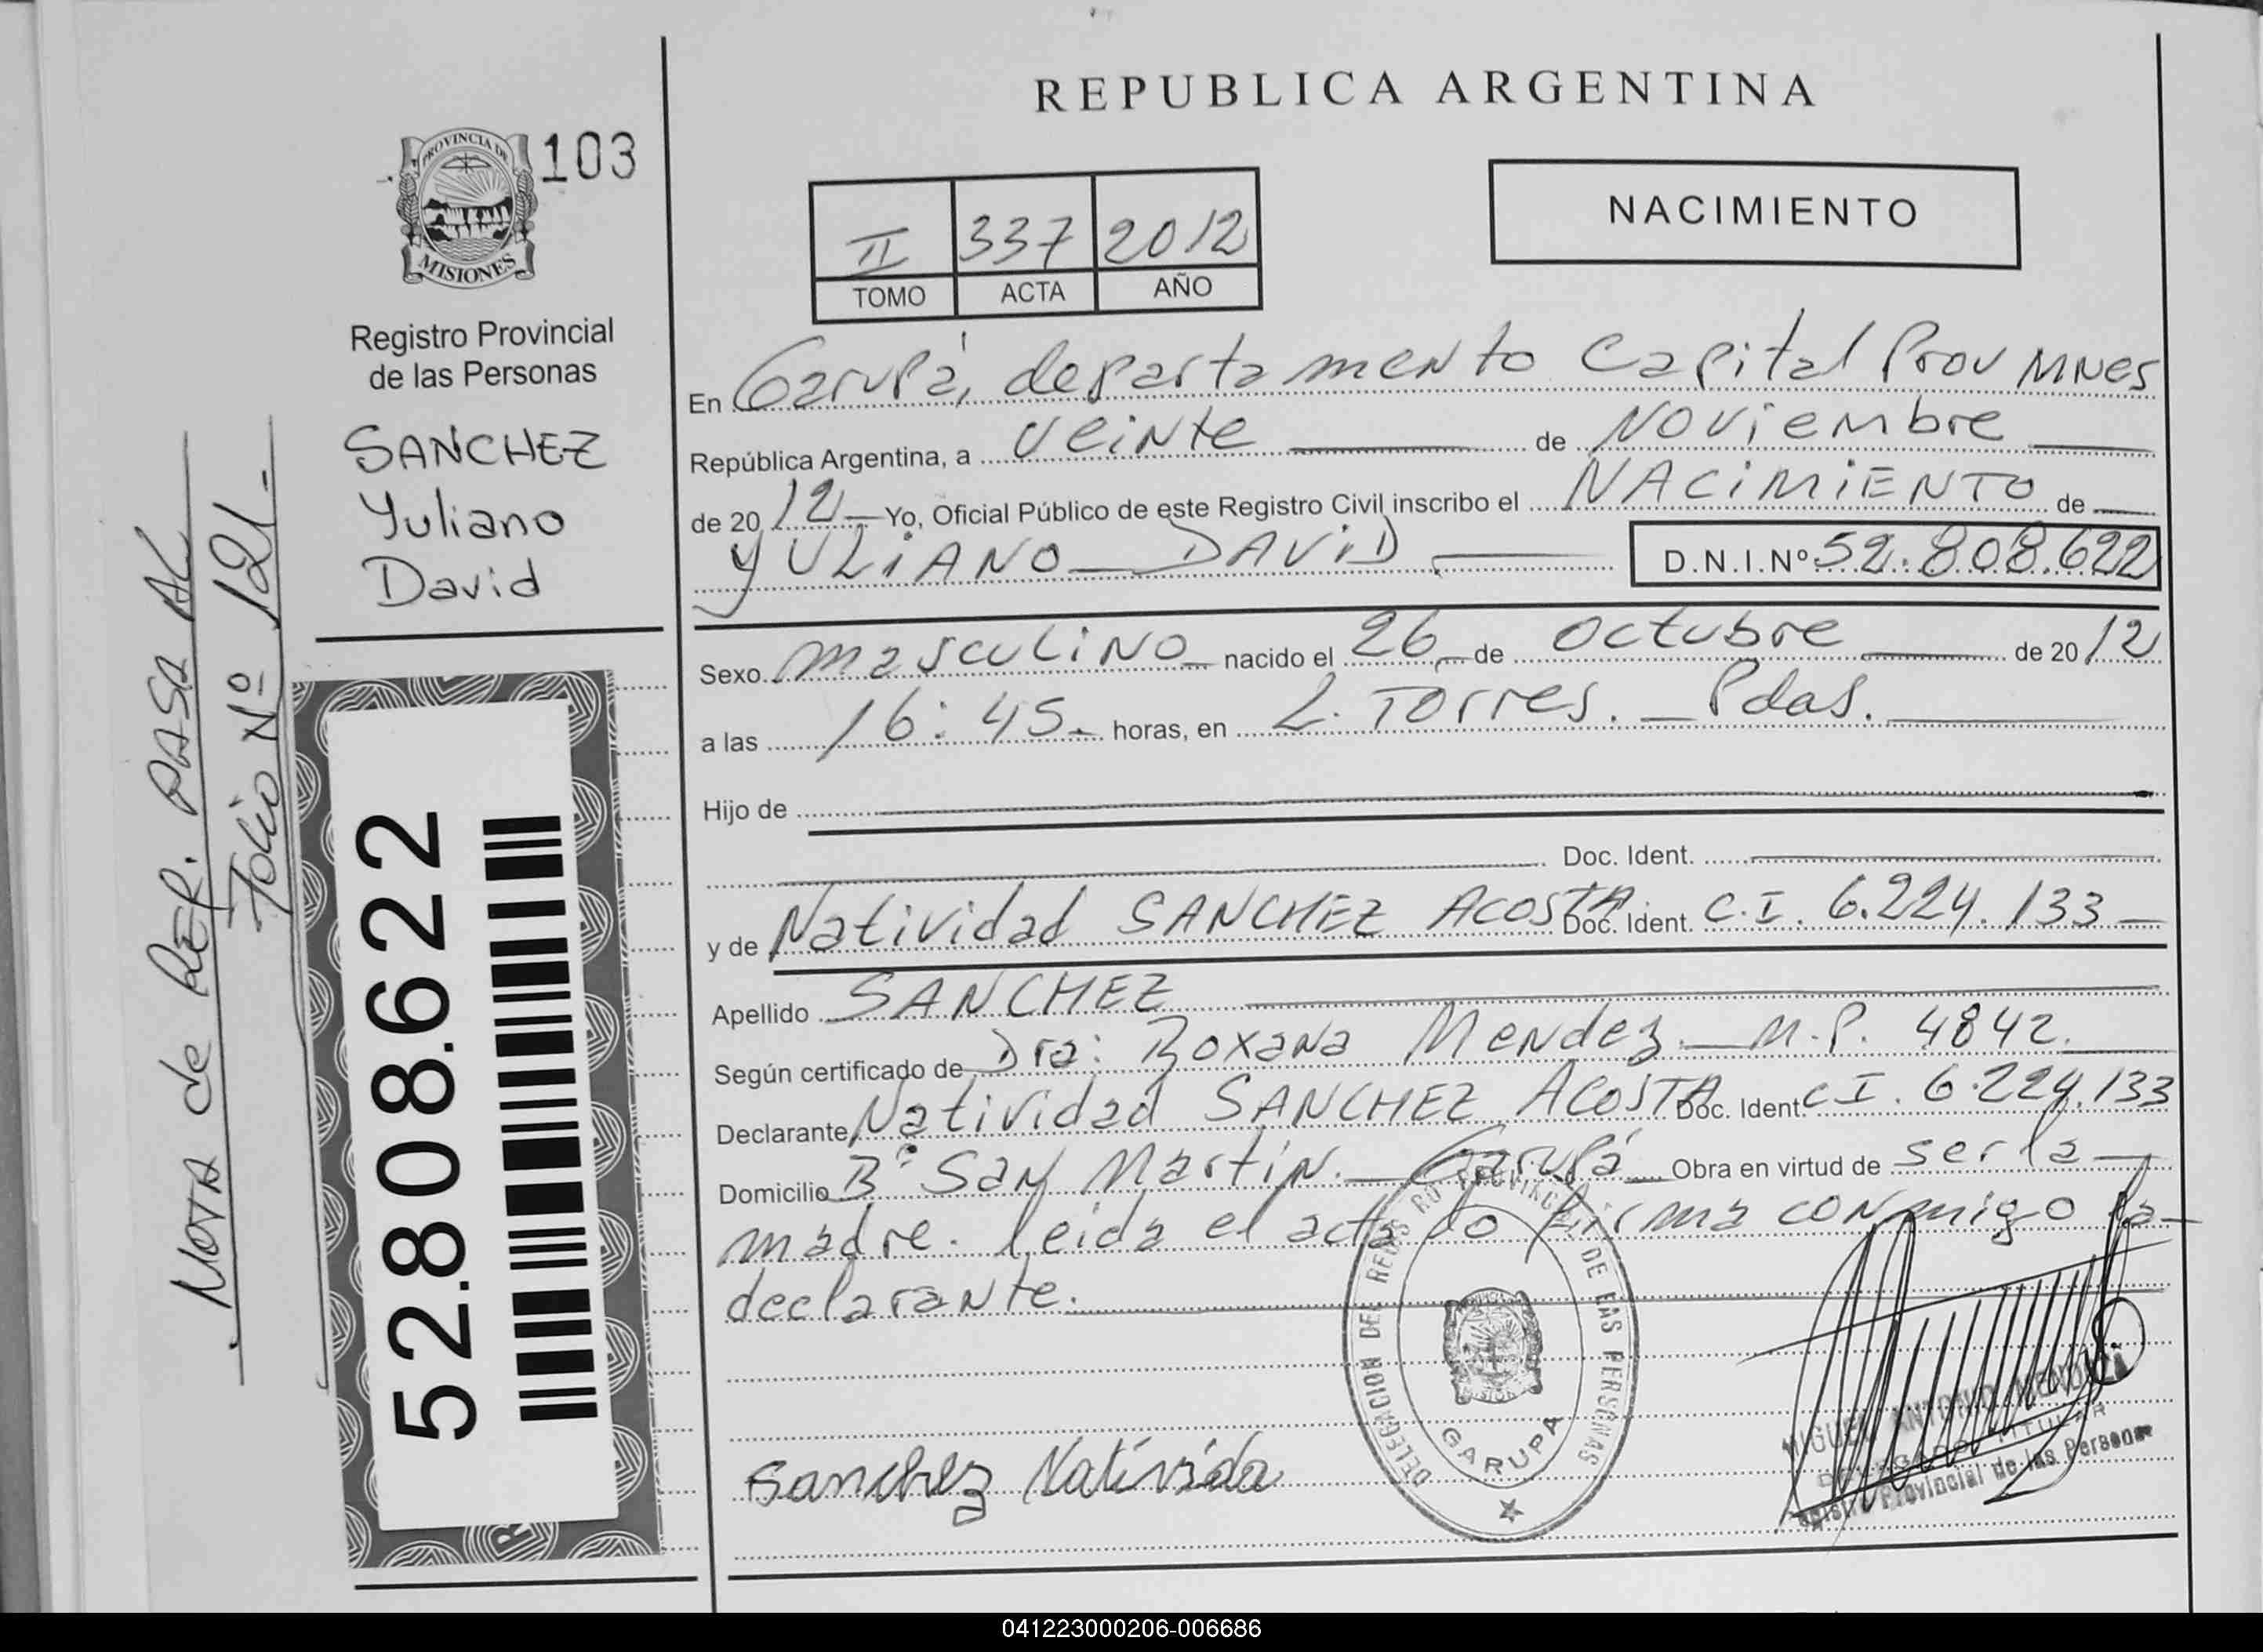 REPUBLICA ARGENTINA
PROVINCIA DE
MISIONES
103
Registro Provincial
de las Personas
SANCHEZ
Yuliano
David
NOTA de RER. PASA AL
Folio Nº 121.-
52.808.622
II 337 2012
TOMO ACTA AÑO
NACIMIENTO
En Garupá, departamento Capital Prov MNes
República Argentina, a veinte de Noviembre
de 2012 Yo, Oficial Público de este Registro Civil inscribo el NACiMiENTO de
YULiANO DAViD D.N.I.Nº 52.808.622
Sexo masculiNo nacido el 26 de octubre de 2012
a las 16:45 horas, en L. Torres. Pdas.
Hijo de
Doc. Ident.
y de Natividad SANCHEZ ACOSTA Doc. Ident. C.I. 6.224.133
Apellido SANCHEZ
Según certificado de Dra: Roxana Mendez M.P. 4842.
Declarante Natividad SANCHEZ ACOSTA Doc. Ident. C.I. 6.224.133
Domicilio Bº San Martin. Garupá Obra en virtud de ser la
madre. leida el acta do firma conmigo la
declarante.
Sanchez Natívida
DELEGACION DE REGISTRO PROVINCIAL DE LAS PERSONAS
GARUPA
MIGUEL ANTONIO MENDOZA
DELEGADO TITULAR
Registro Provincial de las Personas
041223000206-006686